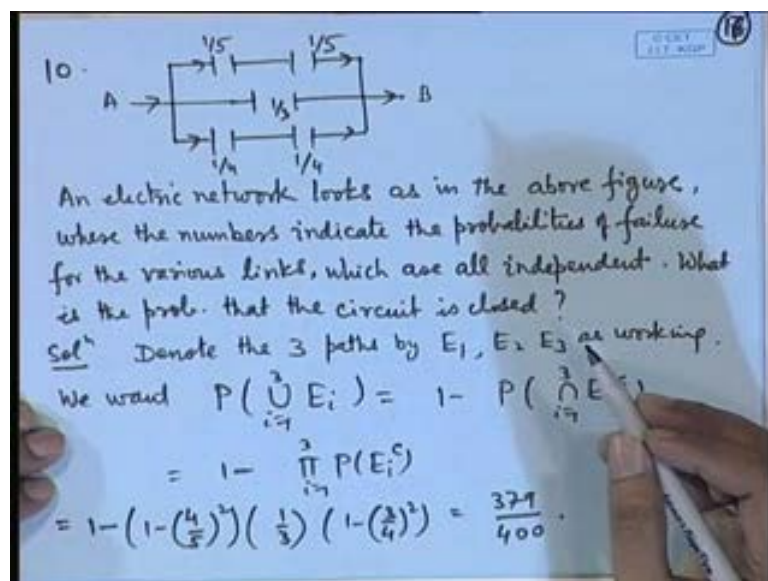 16
C CET
I.I.T. KGP
10.
1/5 1/5
A 1/3 B
1/4 1/4
An electric network looks as in the above figure,
where the numbers indicate the probabilities of failure
for the various links, which are all independent. What
is the prob. that the circuit is closed?
Solⁿ Denote the 3 paths by E₁, E₂ E₃ as working.
We want P( ∪ᵢ₌₁³ Eᵢ ) = 1 - P( ∩ᵢ₌₁³ E
= 1 - ∏ᵢ₌₁³ P(Eᵢᶜ)
= 1-(1-(4/5)²)(1/3)(1-(3/4)²) = 379/400.